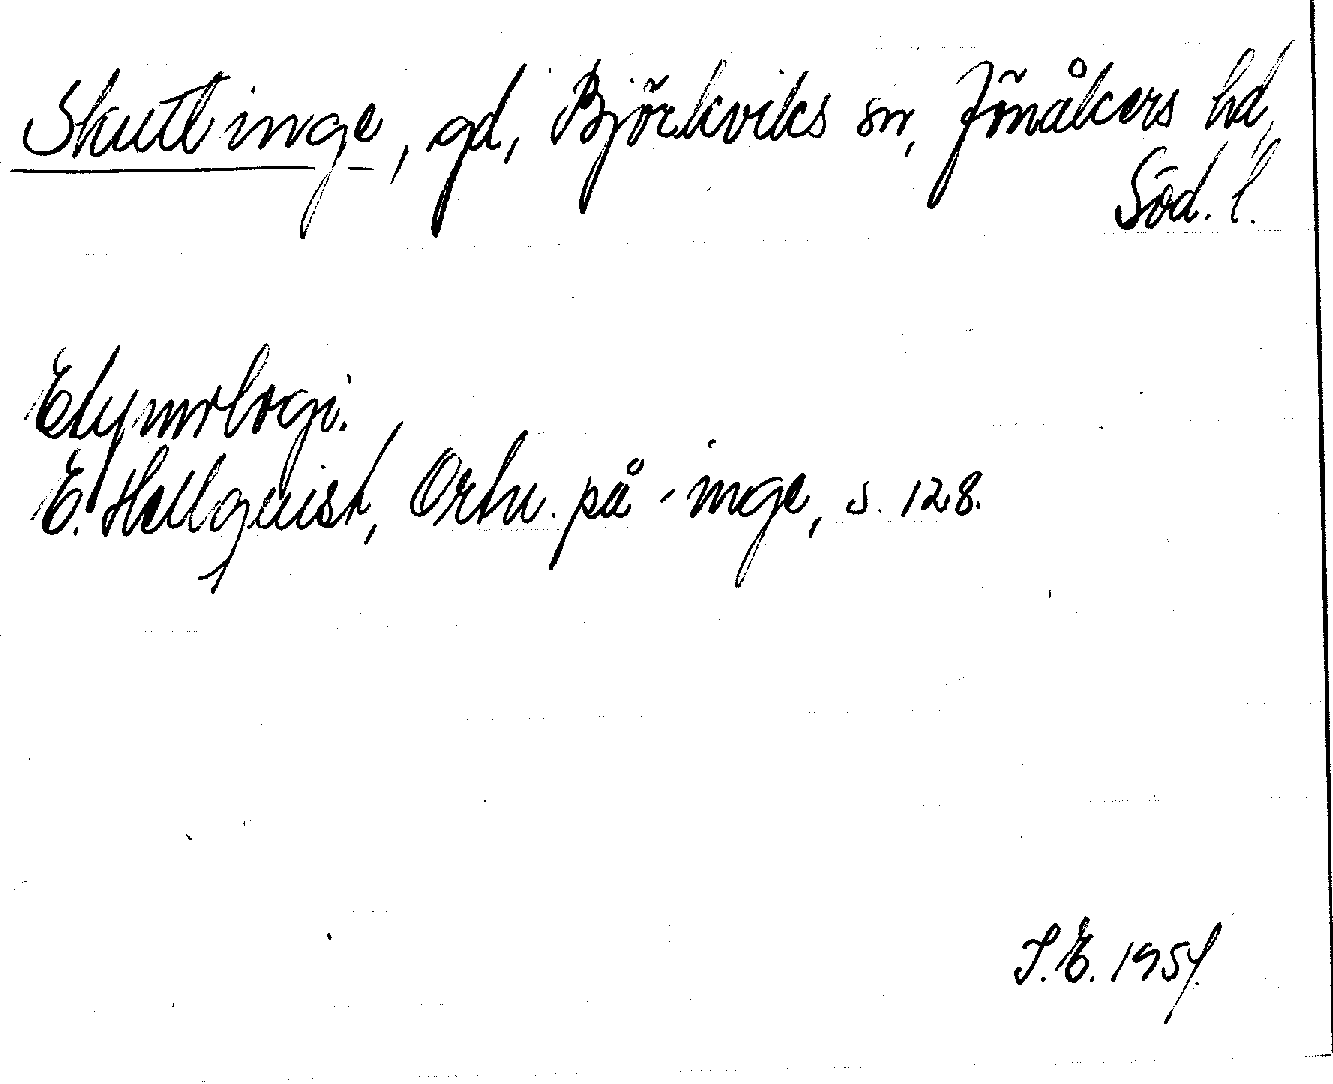 Skuttinge, gd, Björkviks sn, Jönåkers hd,
Söd. l.
Etymologi.
E. Hellquist, Ortn. på -inge, s. 128.
S.E. 1954.